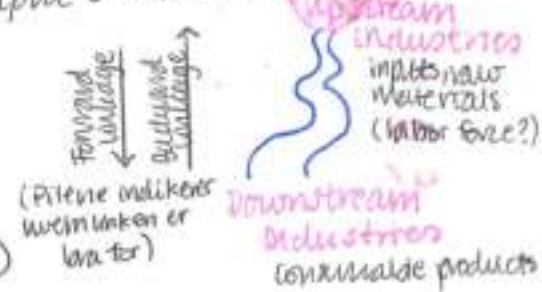 Upstream
industries
inputs, raw
materials
(labor force?)
Forward
linkage
Backward
linkage
(Pilene indikerer
hvem linken er
bra for)
Downstream
Industries
consumable products